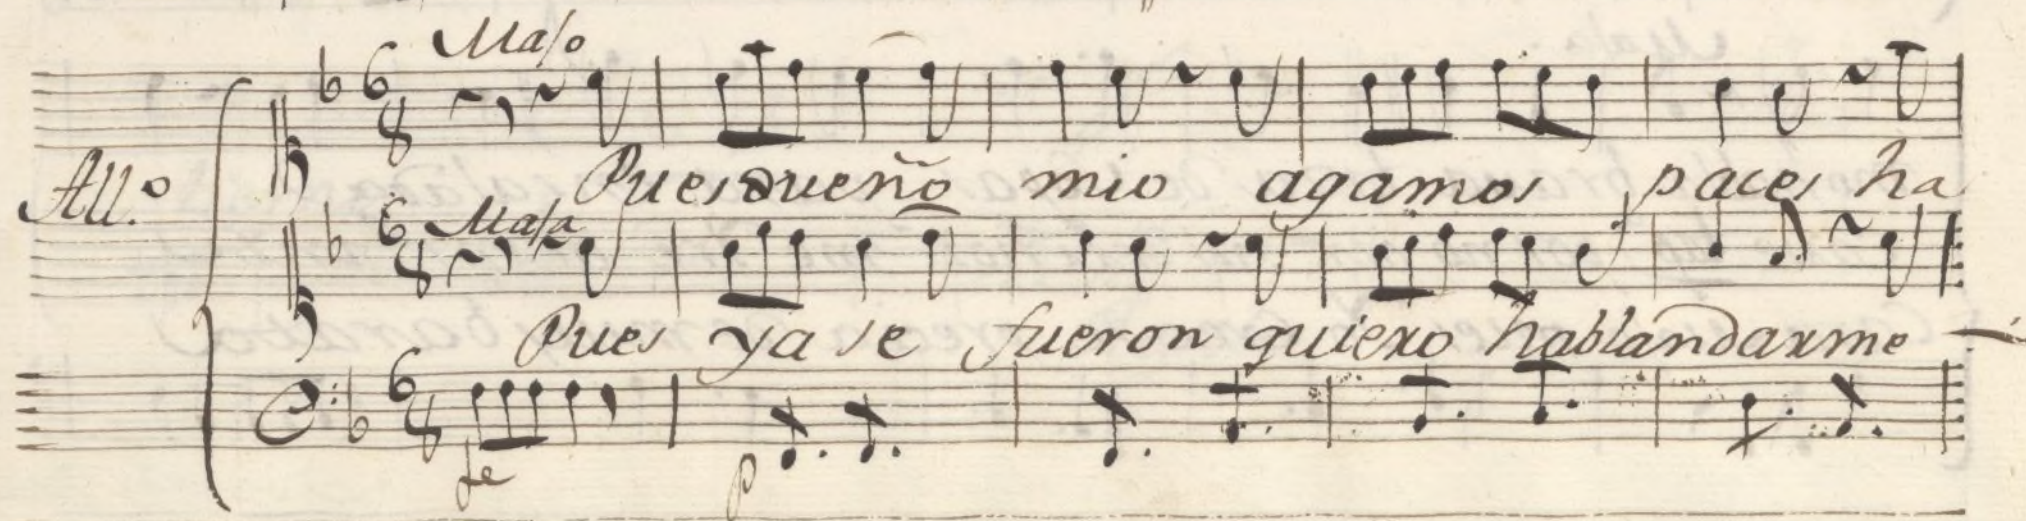 Majo
All.º
Pues dueño mio agamos paces ha
Maja
Pues ya se fueron quiero hablandarme
fe
p